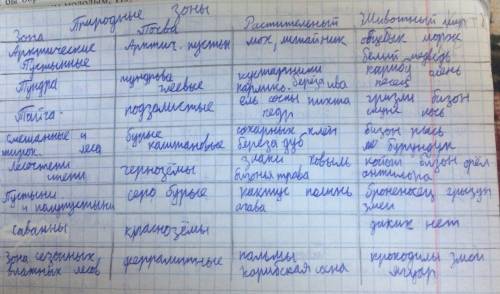 Природные зоны
Зона Почва Растительный Животный мир
Арктические Арктич. пустын мох, лишайник овцебык морж
Пустынные белый медведь
Тундра тундрово глеевые кустарники карлик. берёза ива карибу олень песец
Тайга подзолистые ель сосны пихта кедр гризли бизон лось
смешанные и широк. леса бурые каштановые сахарный клён береза дуб бизон рысь бурундук
лесостепи степи чернозёмы злаки ковыль бизонья трава койот бизон орёл антилопа
Пустыни и полупустыни серо бурые кактус полынь агава броненосец грызуны змеи
саванны краснозёмы диких нет
Зона сезонных влажных лесов ферралитные пальмы карибская сосна крокодилы змеи ягуар